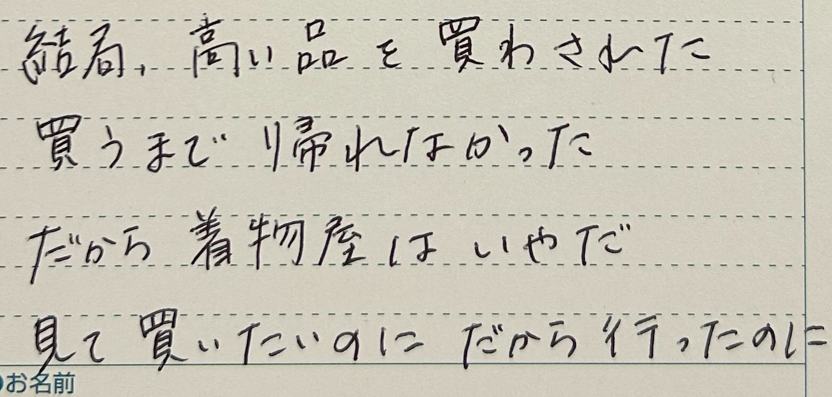 結局、高い品を買わされた
買うまで帰れなかった
だから着物屋はいやだ
見て買いたいのに だから行ったのに
お名前